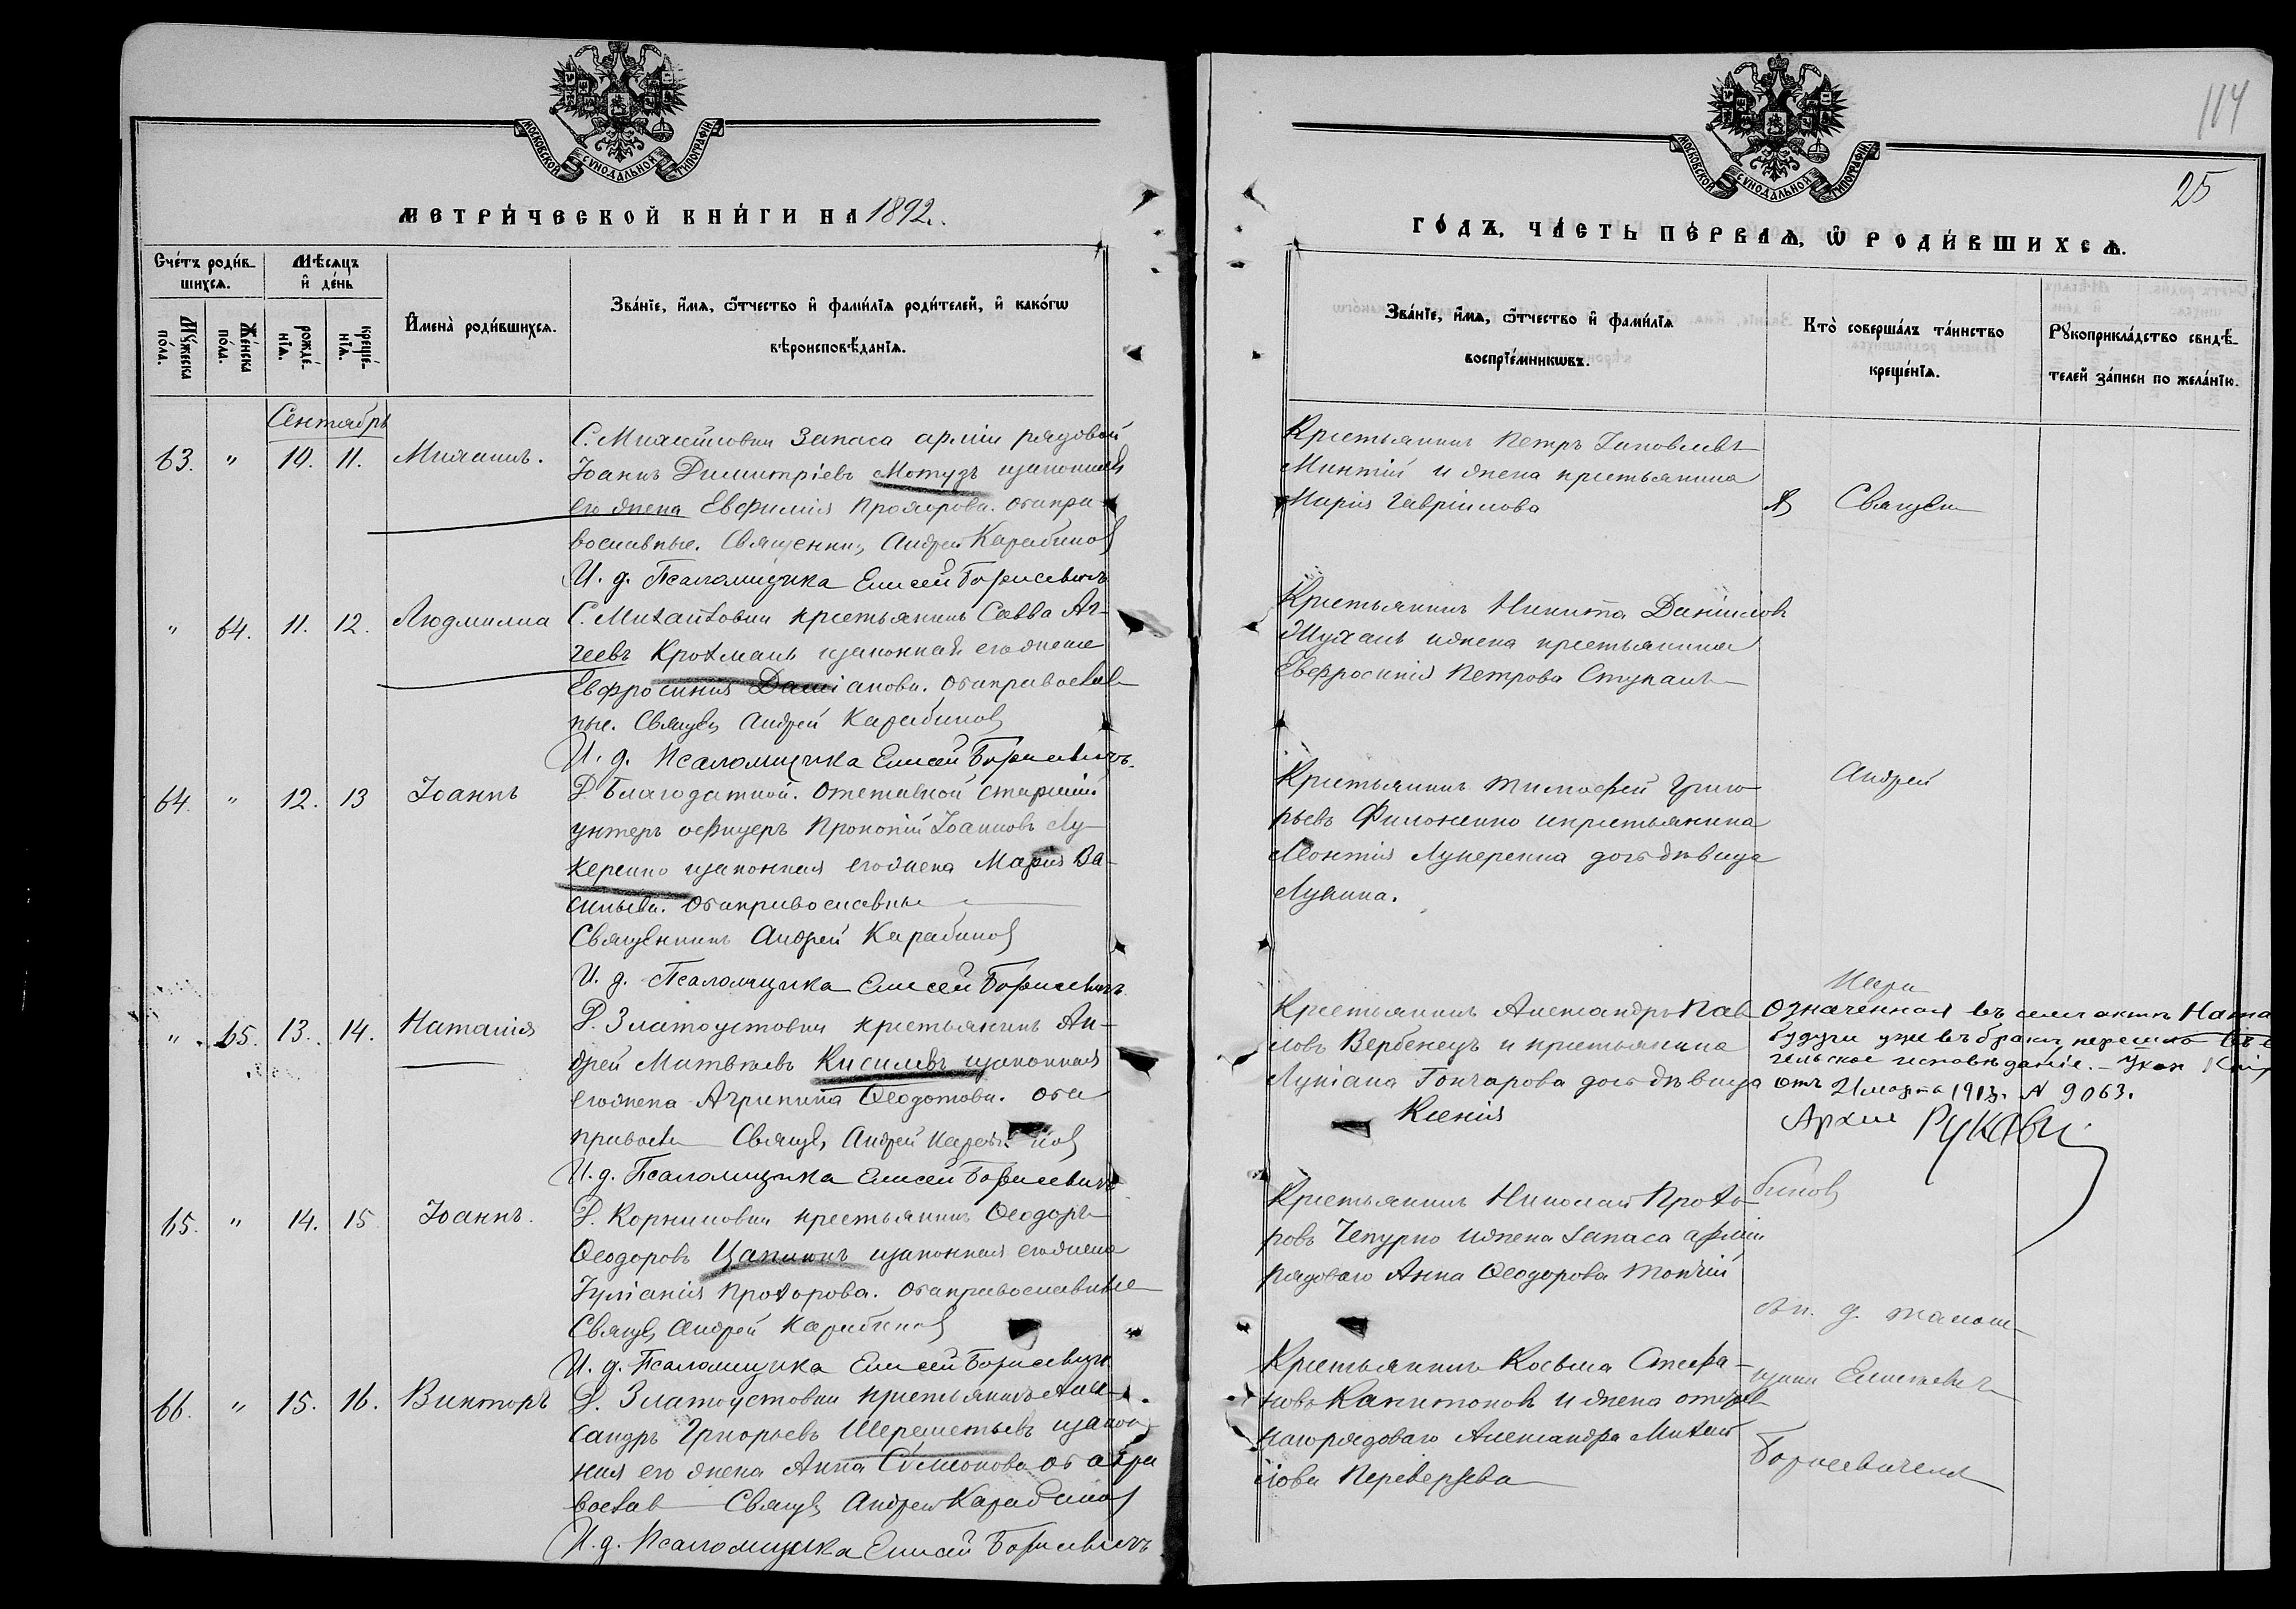 МОСКОВСКОЙ СУНОДАЛЬНОЙ ТИПОГРАФІИ
МЕТРИ́ЧЕСКОЙ КНИ́ГИ НА 1892.
Сче́тъ роди́в-
шихсѧ.
Мѣ́сѧцъ
и҆ де́нь
Мꙋ́жеска
по́ла.
Же́нска
по́ла.
рожде́-
нїѧ.
креще́-
нїѧ.
И҆мена̀ роди́вшихсѧ.
Зва́нїе, и҆́мѧ, ѻ҆́тчество и҆ фами́лїѧ роди́телей, и҆ како́гѡ
вѣроисповѣ́данїѧ.
Сентябрь
63. " 10. 11. Михаилъ.
С. Михайловки запаса арміи рядовой
Іоаннъ Димитріевъ Мотузъ и законная
его жена Евфимія Прохорова. Оба пра
вославные. Священникъ Андрей Карабиновъ
И. д. Псаломщика Елисей Борисевичъ
" 64. 11. 12. Людмилла
С. Михайловки крестьянинъ Савва Аг-
геевъ Крохмаль и законная его жена
Евфросинія Даміанова. Оба православ
ные. Священ Андрей Карабиновъ
И. д. Псаломщика Елисей Борисевичъ.
64. " 12. 13 Іоаннъ
Д. Благодатной. Отставной старшій
унтеръ офицеръ Прокопій Іоанновъ Лу-
керенко и законная его жена Марія Ва-
сильева. Оба православные
Священникъ Андрей Карабиновъ
И. д. Псаломщика Елисей Борисевичъ
" 65. 13. 14. Наталія
Д. Златоустовки крестьянинъ Ан-
дрей Матвѣевъ Киселевъ и законная
его жена Агрипина Ѳеодотова. Оба
правосл Священ Андрей Карабиновъ
И. д. Псаломщика Елисей Борисевичъ
65. " 14. 15 Іоаннъ.
Д. Корниловки крестьянинъ Ѳеодоръ
Ѳеодоровъ Цапликъ и законная его жена
Іуліанія Прохорова. Оба православные
Священ Андрей Карабиновъ
И. д. Псаломщика Елисей Борисевичъ
66. " 15. 16. Викторъ
Д. Златоустовки крестьянинъ Алек-
сандръ Григорьевъ Шереметьевъ и закон
ная его жена Анна Симонова оба пра
вослав Священ Андрей Карабиновъ
И. д. Псаломщика Елисей Борисевичъ
114
25
МОСКОВСКОЙ СУНОДАЛЬНОЙ ТИПОГРАФІИ
ГО́ДЪ, ЧА́СТЬ ПЕ́РВАѦ, Ѡ҆ РОДИ́ВШИХСѦ.
Зва́нїе, и҆́мѧ, ѻ҆́тчество и҆ фами́лїѧ
воспрїе́мникѡвъ.
Кто̀ соверша́лъ та́инство
креще́нїѧ.
Рꙋкоприкла́дство свидѣ́-
телей за́писи по жела́нїю.
Крестьянинъ Петръ Іаковлевъ
и жена крестьянина
Марія Гавріилова
Священ
Крестьянинъ Никита Даніиловъ
и жена крестьянина
Евфросинія Петрова Ступакъ
Крестьянинъ Тимофей Григо-
рьевъ Филоненко и крестьянина
Леонтія Лукеренка дочь дѣвица
Лукина.
Андрей
Крестьянинъ Александръ Пав
ловъ Вербенецъ и крестьянина
Лукіана Гончарова дочь дѣвица
Ксенія
Кара
Означенная въ семъ актѣ Ната
будучи уже въ бракѣ перешла въ е
гельское исповѣданіе. – Указ
отъ 21 марта 1913. № 9063.
Рукави
Крестьянинъ Николай Прохо-
ровъ Чепурко и жена запаса арміи
рядоваго Анна Ѳеодорова Топчій
биновъ
и. д. псалом-
Крестьянинъ Косьма Стефа-
новъ Капитоновъ и жена отстав
наго рядоваго Александра Михай
лова Переверзева
щика Елисеемъ
Борисевичемъ